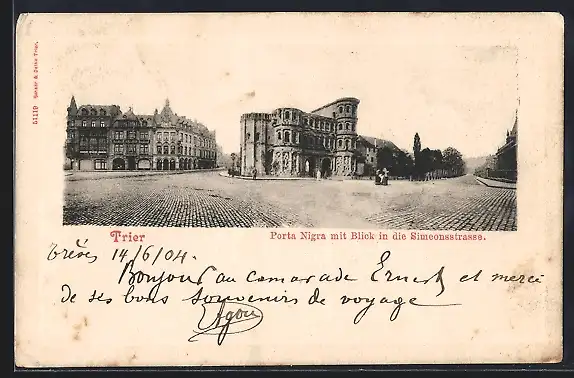 51119 Schaar & Dathe Trier.
Trier
Porta Nigra mit Blick in die Simeonsstrasse.
Trèves 14/6/04.
Bonjour au camarade Ernest et merci
de ses bons souvenirs de voyage